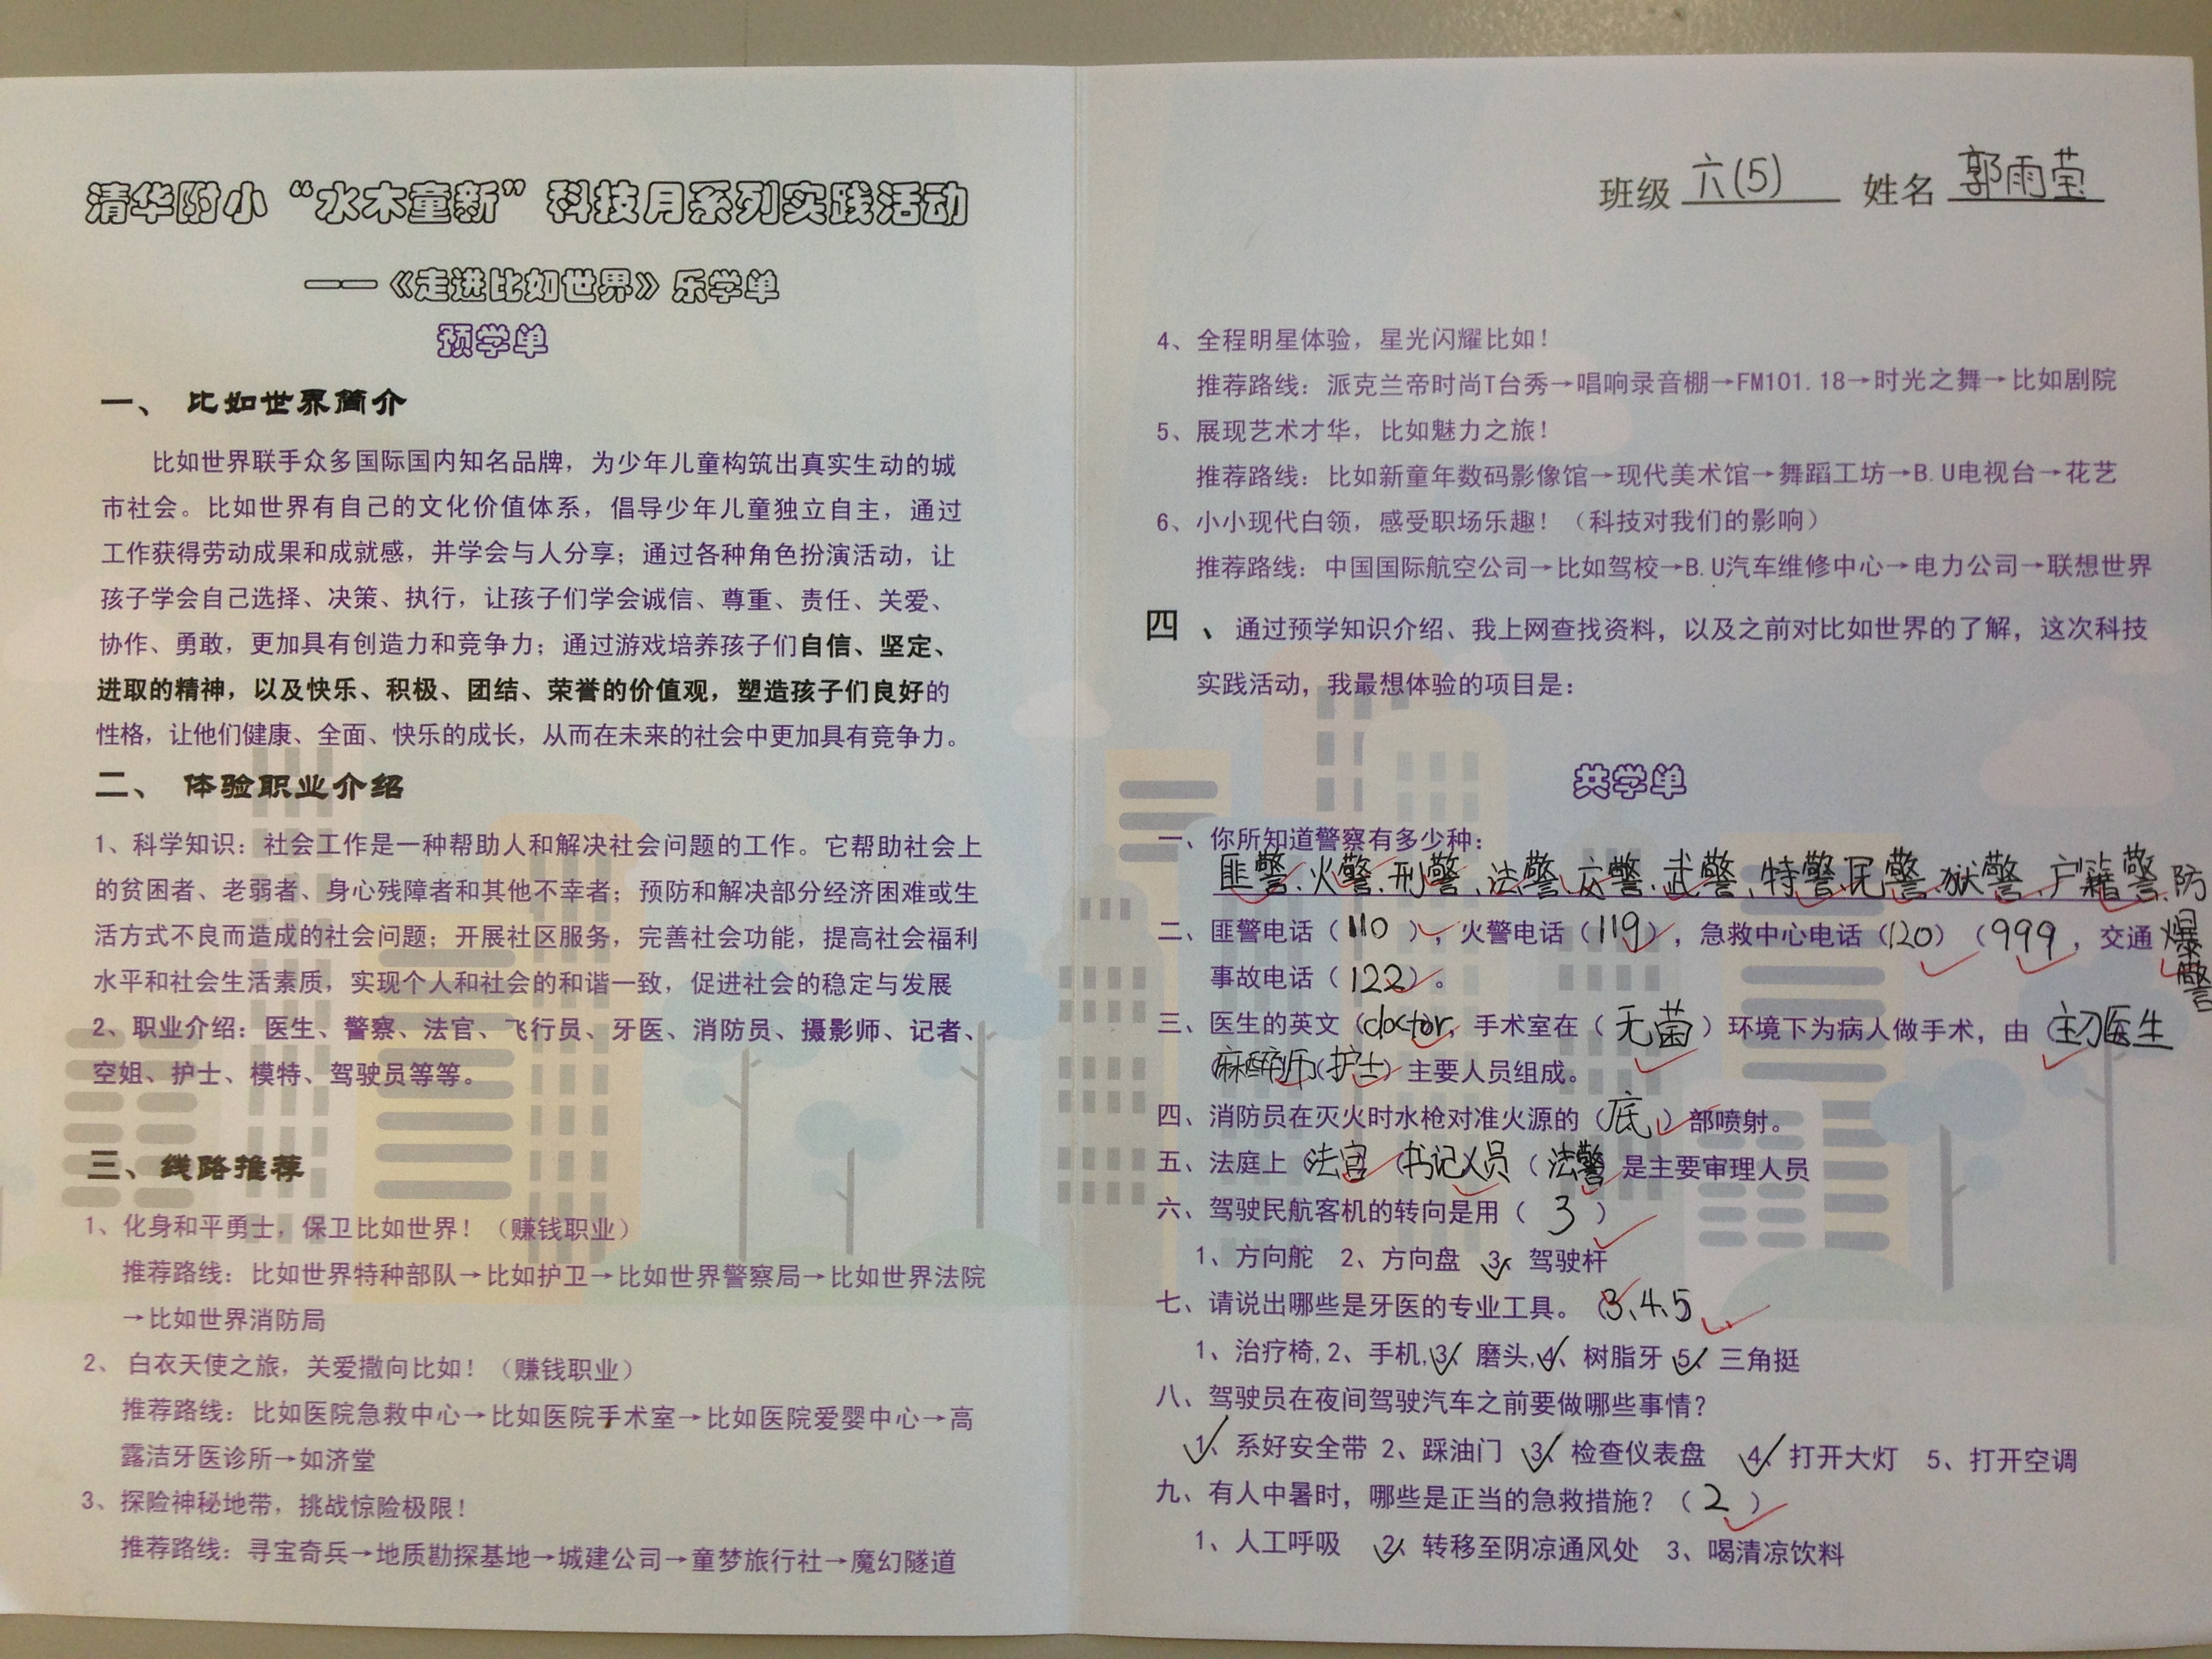 清华附小“水木童新”科技月系列实践活动
——《走进比如世界》乐学单
预学单
一、 比如世界简介
比如世界联手众多国际国内知名品牌，为少年儿童构筑出真实生动的城
市社会。比如世界有自己的文化价值体系，倡导少年儿童独立自主，通过
工作获得劳动成果和成就感，并学会与人分享；通过各种角色扮演活动，让
孩子学会自己选择、决策、执行，让孩子们学会诚信、尊重、责任、关爱、
协作、勇敢，更加具有创造力和竞争力；通过游戏培养孩子们自信、坚定、
进取的精神，以及快乐、积极、团结、荣誉的价值观，塑造孩子们良好的
性格，让他们健康、全面、快乐的成长，从而在未来的社会中更加具有竞争力。
二、 体验职业介绍
1、科学知识：社会工作是一种帮助人和解决社会问题的工作。它帮助社会上
的贫困者、老弱者、身心残障者和其他不幸者；预防和解决部分经济困难或生
活方式不良而造成的社会问题；开展社区服务，完善社会功能，提高社会福利
水平和社会生活素质，实现个人和社会的和谐一致，促进社会的稳定与发展
2、职业介绍：医生、警察、法官、飞行员、牙医、消防员、摄影师、记者、
空姐、护士、模特、驾驶员等等。
三、线路推荐
1、化身和平勇士，保卫比如世界！（赚钱职业）
推荐路线：比如世界特种部队→比如护卫→比如世界警察局→比如世界法院
→比如世界消防局
2、白衣天使之旅，关爱撒向比如！（赚钱职业）
推荐路线：比如医院急救中心→比如医院手术室→比如医院爱婴中心→高
露洁牙医诊所→如济堂
3、探险神秘地带，挑战惊险极限！
推荐路线：寻宝奇兵→地质勘探基地→城建公司→童梦旅行社→魔幻隧道
班级 六(5) 姓名 郭雨莹
4、全程明星体验，星光闪耀比如！
推荐路线：派克兰帝时尚T台秀→唱响录音棚→FM101.18→时光之舞→比如剧院
5、展现艺术才华，比如魅力之旅！
推荐路线：比如新童年数码影像馆→现代美术馆→舞蹈工坊→B.U电视台→花艺
6、小小现代白领，感受职场乐趣！（科技对我们的影响）
推荐路线：中国国际航空公司→比如驾校→B.U汽车维修中心→电力公司→联想世界
四 、通过预学知识介绍、我上网查找资料，以及之前对比如世界的了解，这次科技
实践活动，我最想体验的项目是：
共学单
一、你所知道警察有多少种：
匪警、火警、刑警、法警、交警、武警、特警、民警、狱警、户籍警、防爆警
二、匪警电话（110），火警电话（119），急救中心电话（120）（999，交通
事故电话（122）。
三、医生的英文（doctor，手术室在（无菌）环境下为病人做手术，由（主刀医生
（麻醉师）（护士）主要人员组成。
四、消防员在灭火时水枪对准火源的（底）部喷射。
五、法庭上（法官（书记人员（法警 是主要审理人员
六、驾驶民航客机的转向是用（3）
1、方向舵 2、方向盘 3、驾驶杆
七、请说出哪些是牙医的专业工具。（3、4、5
1、治疗椅,2、手机,3、磨头,4、树脂牙 5、三角挺
八、驾驶员在夜间驾驶汽车之前要做哪些事情？
1、系好安全带 2、踩油门 3、检查仪表盘 4、打开大灯 5、打开空调
九、有人中暑时，哪些是正当的急救措施？（2）
1、人工呼吸 2、转移至阴凉通风处 3、喝清凉饮料